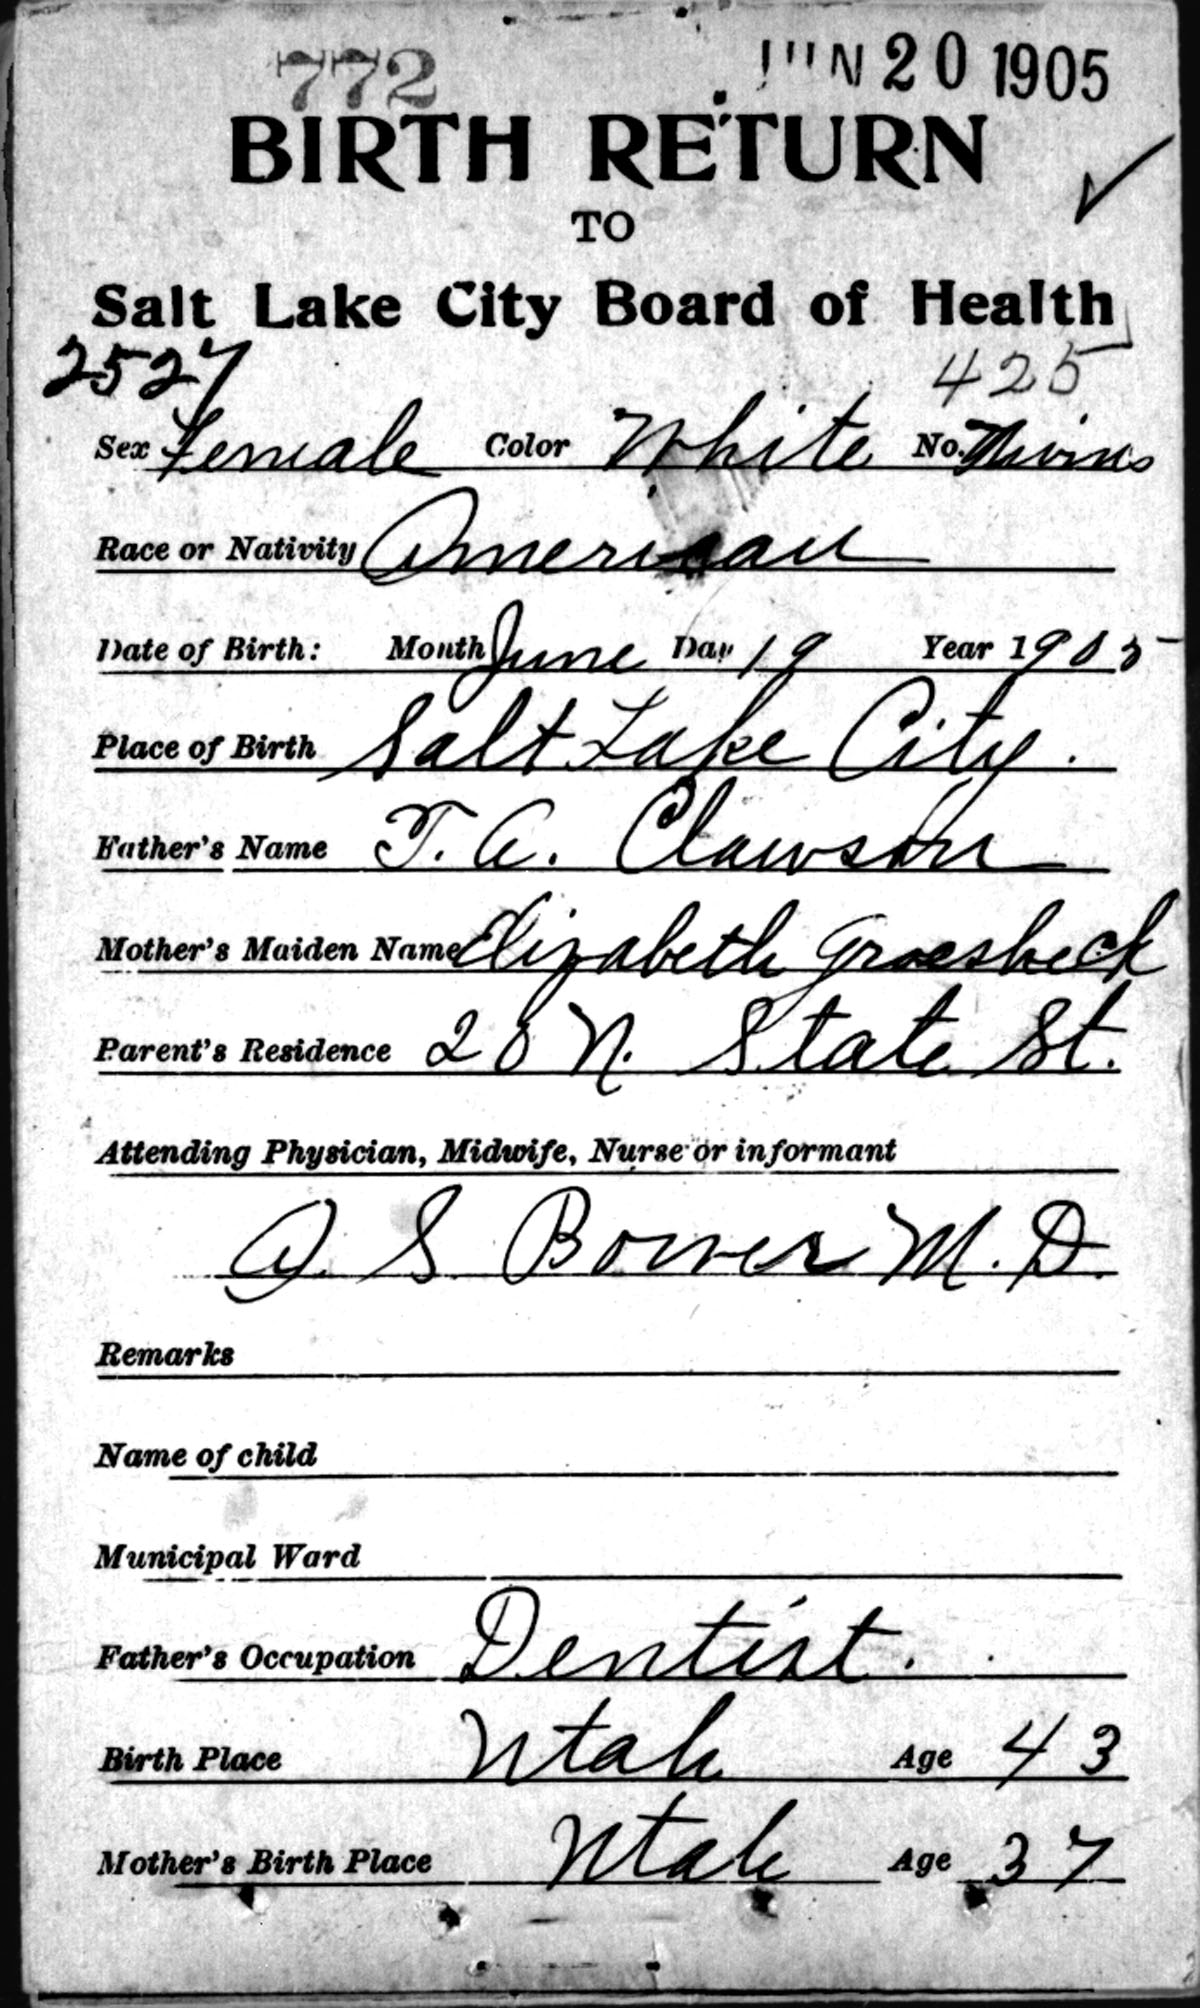 772 JUN 20 1905
BIRTH RETURN
TO
Salt Lake City Board of Health
2527 425
Sex Female Color White No. Twins
Race or Nativity American
Date of Birth: Month June Day 19 Year 1905
Place of Birth Salt Lake City.
Father's Name T. A. Clawson
Mother's Maiden Name Elizabeth Groesbeck
Parent's Residence 20 N. State St.
Attending Physician, Midwife, Nurse or informant
S Bower M. D.
Remarks
Name of child
Municipal Ward
Father's Occupation Dentist.
Birth Place Utah Age 43
Mother's Birth Place Utah Age 37